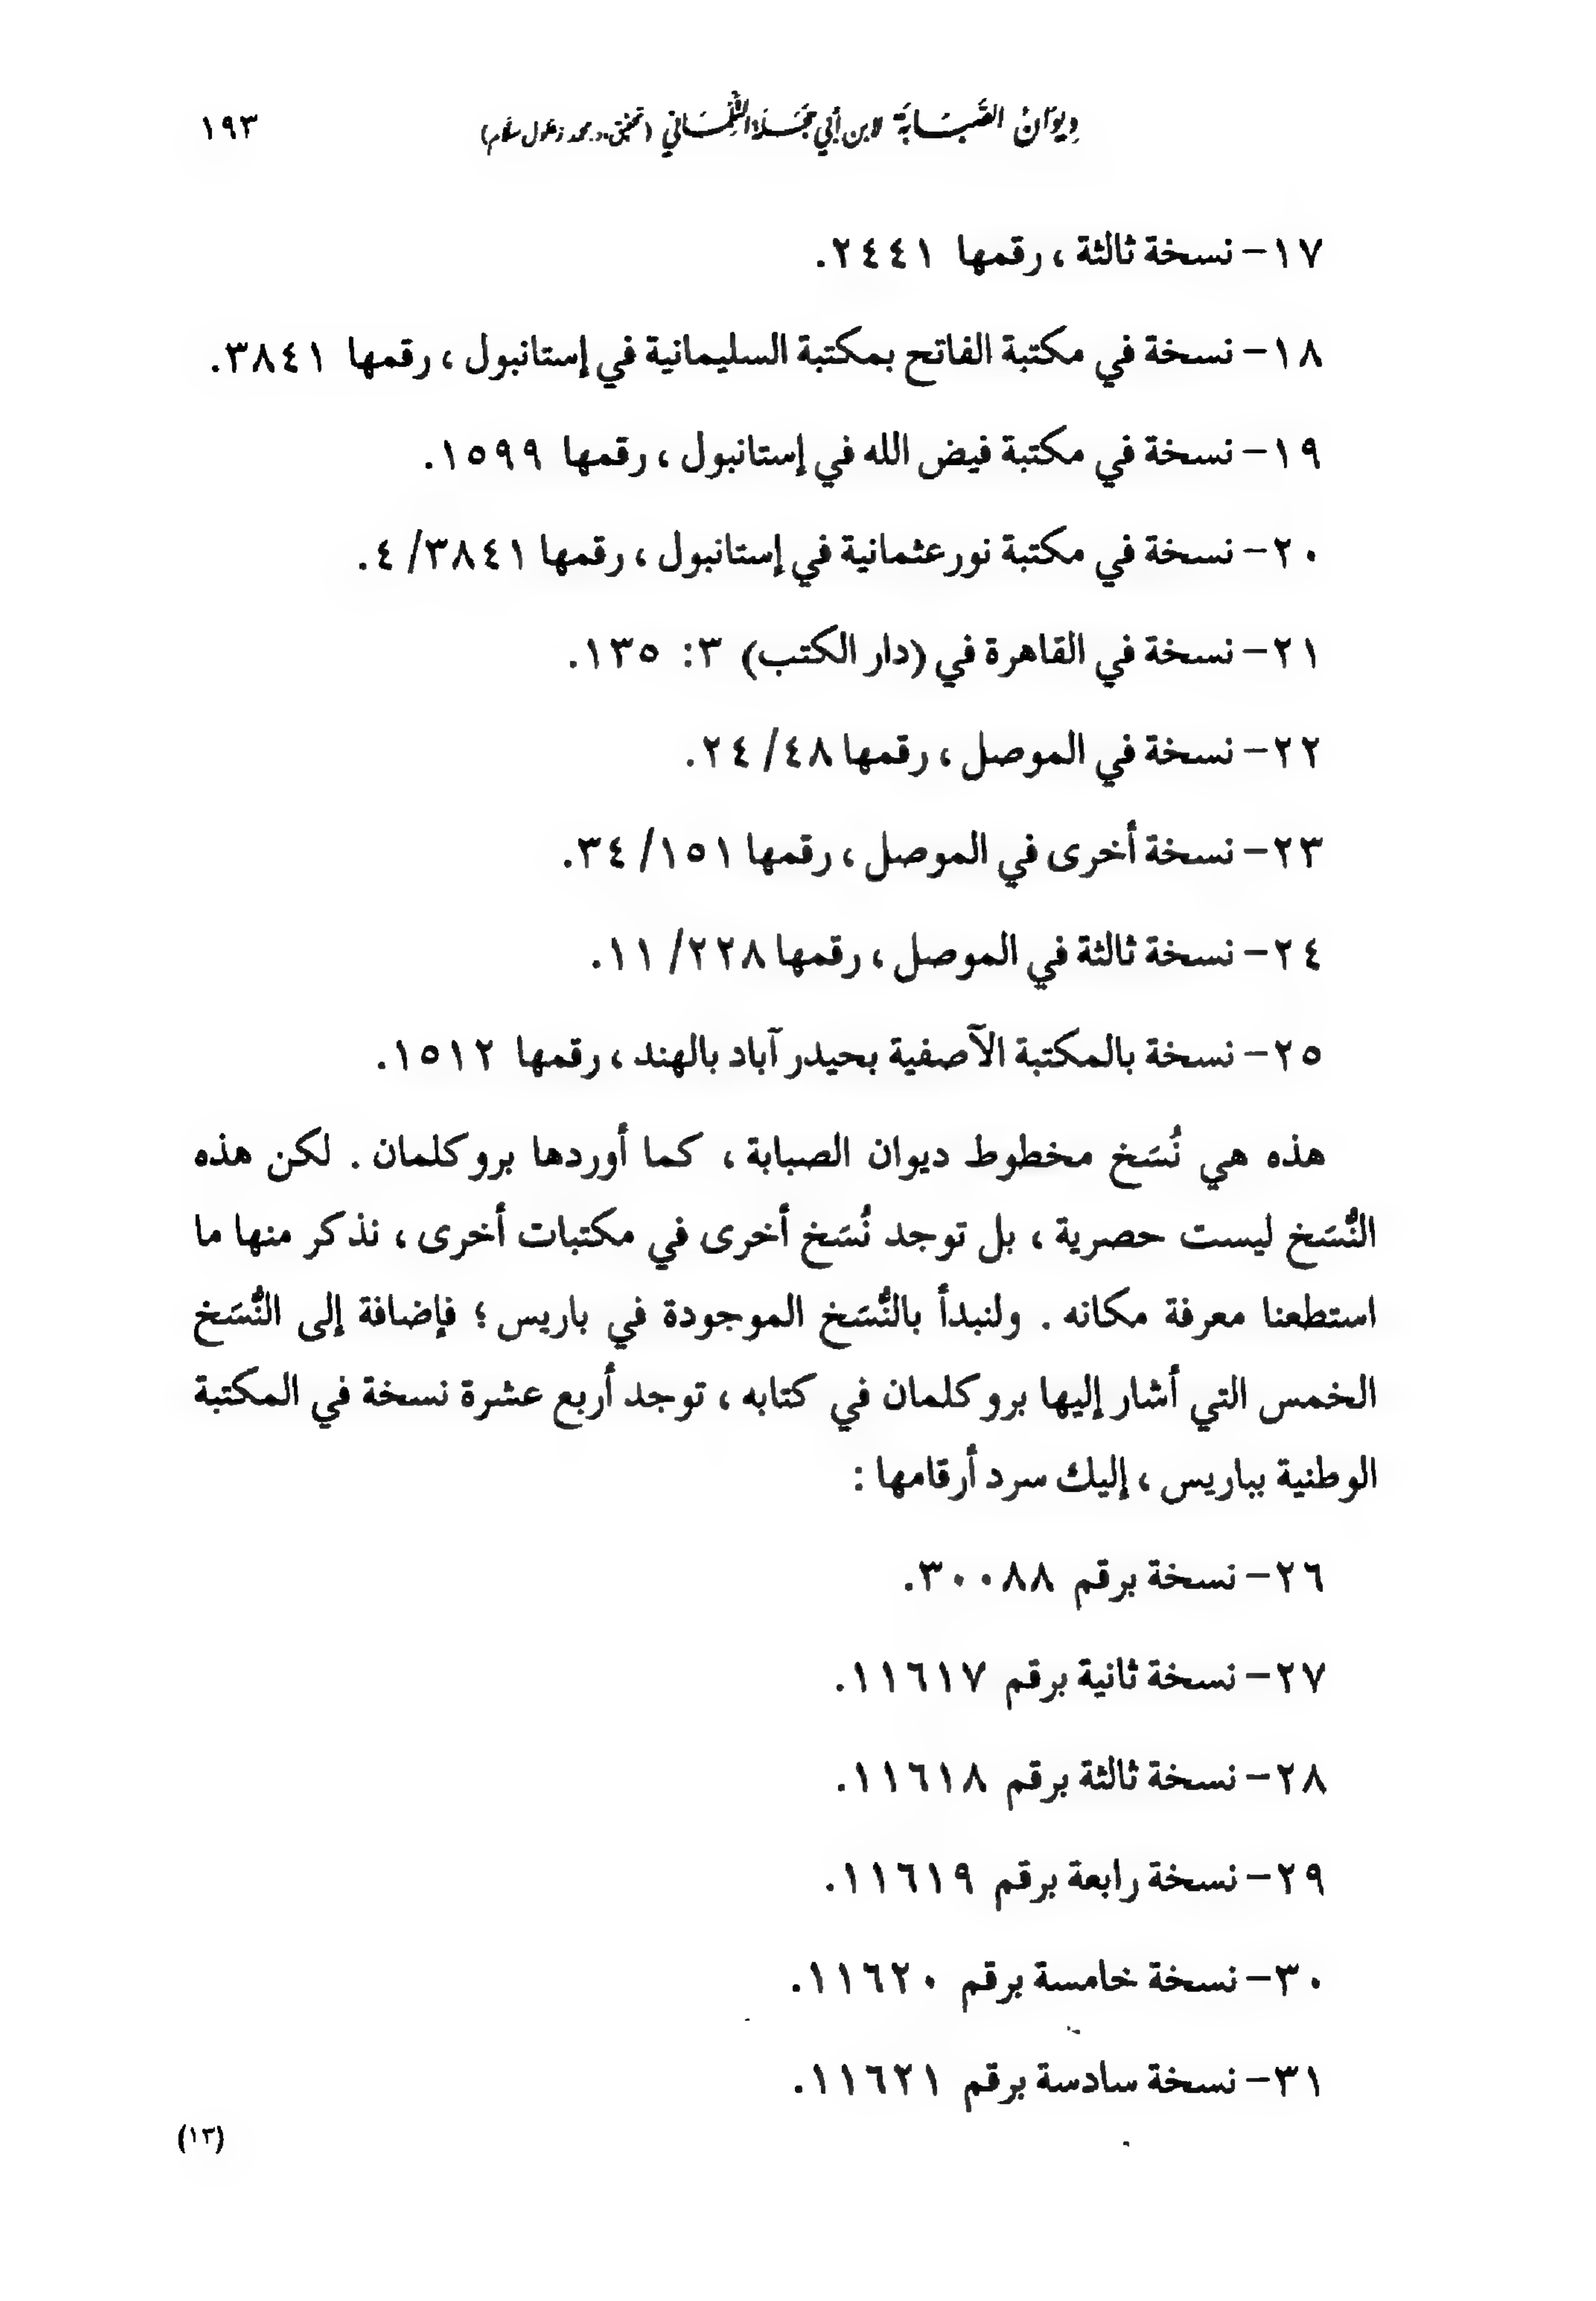 ديوان الصبابة لابن أبي حجلة التلمساني (تحقيق د. محمد زغلول سلام) ١٩٣
١٧- نسخة ثالثة ، رقمها ٢٤٤١.
١٨- نسخة في مكتبة الفاتح بمكتبة السليمانية في إستانبول ، رقمها ٣٨٤١.
١٩- نسخة في مكتبة فيض الله في إستانبول ، رقمها ١٥٩٩.
٢٠- نسخة في مكتبة نور عثمانية في إستانبول ، رقمها ٣٨٤١/ ٤.
٢١- نسخة في القاهرة في (دار الكتب) ٣: ١٣٥.
٢٢- نسخة في الموصل ، رقمها ٤٨/ ٢٤.
٢٣- نسخة أخرى في الموصل ، رقمها ١٥١/ ٣٤.
٢٤- نسخة ثالثة في الموصل ، رقمها ٢٢٨/ ١١.
٢٥- نسخة بالمكتبة الآصفية بحيدر آباد بالهند ، رقمها ١٥١٢.
هذه هي نُسَخ مخطوط ديوان الصبابة ، كما أوردها بروكلمان . لكن هذه
النُّسَخ ليست حصرية ، بل توجد نُسَخ أخرى في مكتبات أخرى ، نذكر منها ما
استطعنا معرفة مكانه . ولنبدأ بالنُّسَخ الموجودة في باريس ؛ فإضافة إلى النُّسَخ
الخمس التي أشار إليها بروكلمان في كتابه ، توجد أربع عشرة نسخة في المكتبة
الوطنية بباريس ، إليك سرد أرقامها :
٢٦- نسخة برقم ٣٠٠٨٨.
٢٧- نسخة ثانية برقم ١١٦١٧.
٢٨- نسخة ثالثة برقم ١١٦١٨.
٢٩- نسخة رابعة برقم ١١٦١٩.
٣٠- نسخة خامسة برقم ١١٦٢٠.
٣١- نسخة سادسة برقم ١١٦٢١.
(١٣)